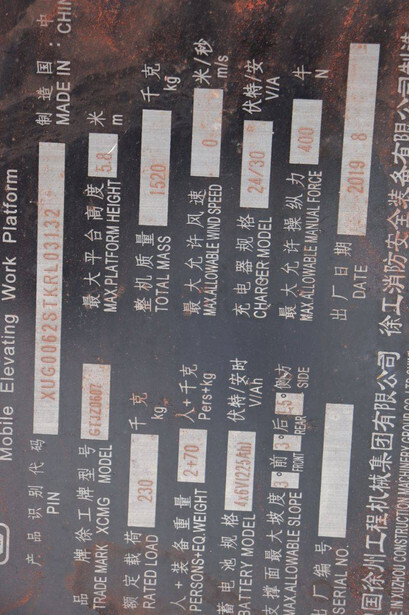 Mobile Elevating Work Platform
产品识别代码 PIN XUG0062STKRL03132 制造国:中 MADE IN: CHIN
品牌徐工牌型号 TRADE MARK XCMG MODEL GTJZ0607 最大平台高度 MAX.PLATFORM HEIGHT 5.8 米 m
额定载荷 RATED LOAD 230 千克 kg 整机质量 TOTAL MASS 1520 千克 kg
人+装备重量 PERSONS+EQ.WEIGHT 2+70 人+千克 Pers+kg 最大允许风速 MAX.ALLOWABLE WIND SPEED 0 米/秒 m/s
蓄电池规格 BATTERY MODEL 4x6V(225Ah) 伏特/安时 V/Ah 充电器规格 CHARGER MODEL 24/30 伏特/安 V/A
支撑面最大坡度 MAX.ALLOWABLE SLOPE 3 °前 FRONT 3 °后 REAR 1.5 °侧方 SIDE 最大允许操纵力 MAX.ALLOWABLE MANUAL FORCE 400 牛 N
出厂编号 SERIAL NO. 出厂日期 DATE 2019 8
国徐州工程机械集团有限公司 徐工消防安全装备有限公司制造
XUZHOU CONSTRUCTION MACHINERY GROUP CO.